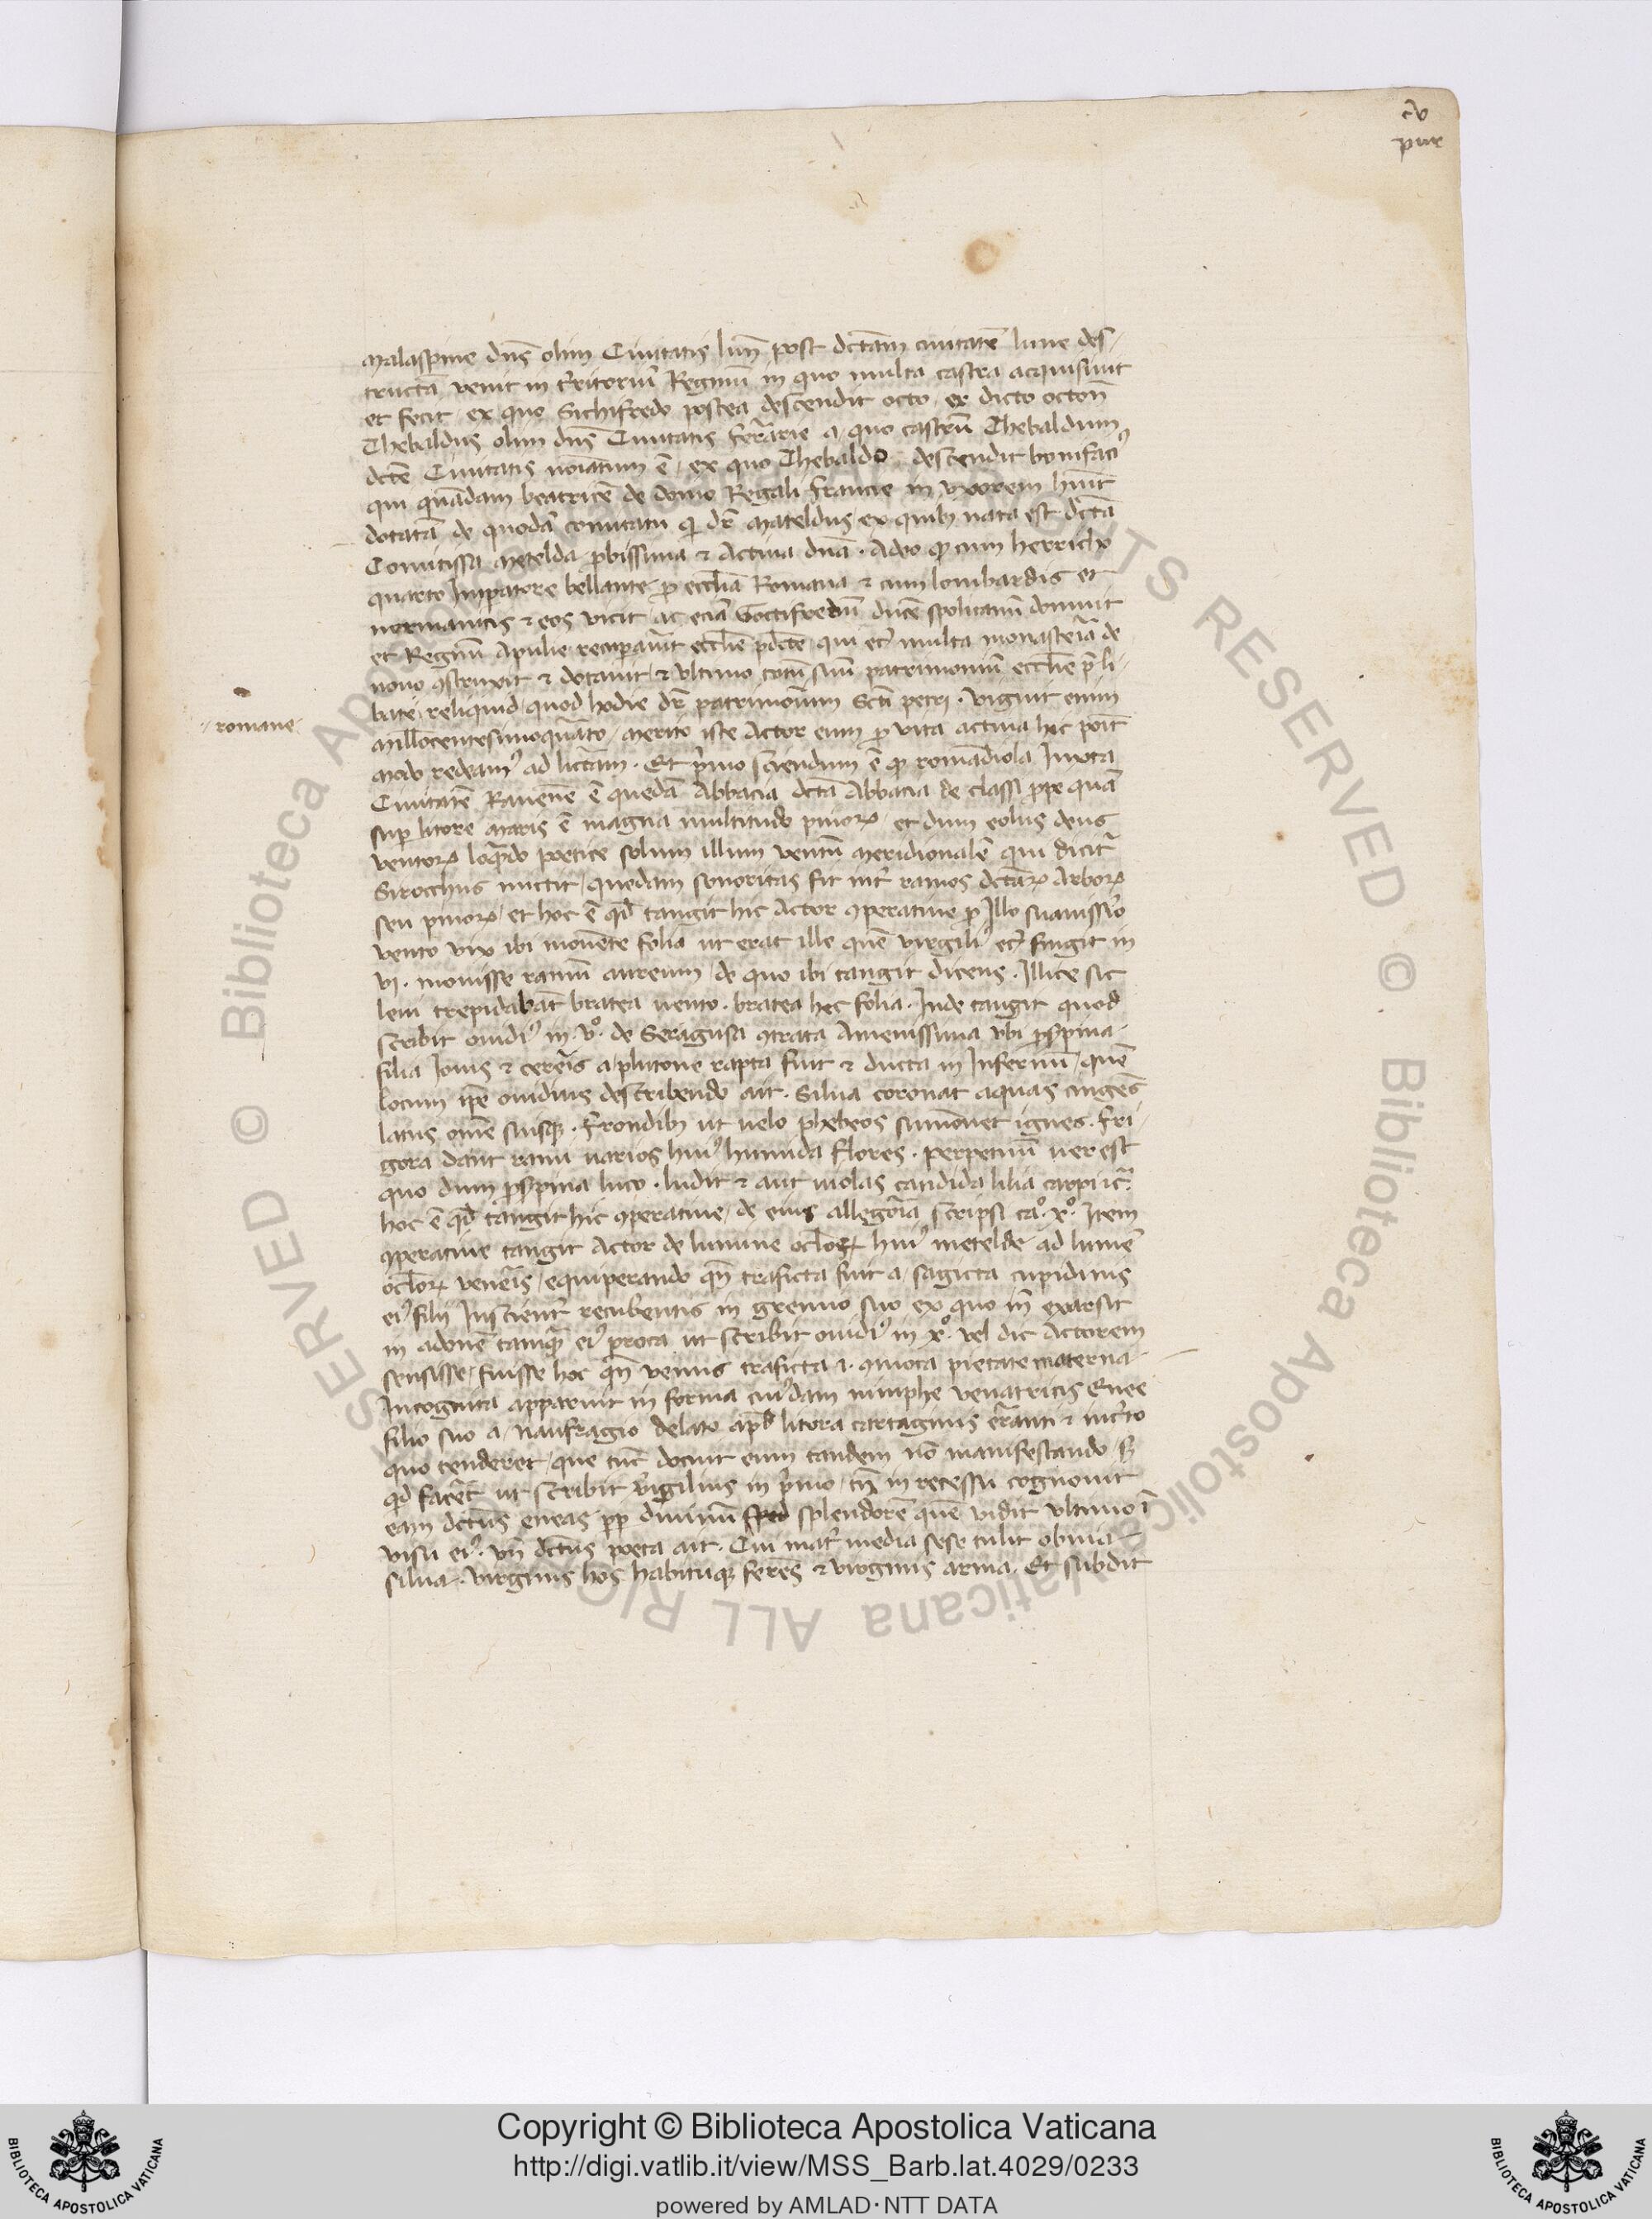 cv
pur
Malaspine dns olim Ciuitatis lun post dctam ciuitate lune des-
tructa venit in t'ritoriu Reginu in quo multa castra acquisiuit
et fecit, ex quo Sichifredo postea descendit octo, ex dicto octon
Thebaldus olim dns Ciuitatis ferrarie a quo castru Thebaldum
dcte Ciuitatis noiatum e, ex quo Thebaldo descendit bonifaci'
qui quadam beatrice de domo Regali francie in vxorem huit
dotata de quoda comitatu qi dr Mateldus, ex quib nata est dcta
Comitissa Metelda probissima et Actiua dna. Adeo qp cum herricho
quarto Impatore bellante p eccliam Romana et cum lombardis et
normannis et eos vicit, ac ecia Goctifredu duce spolitanu domuit
et Regnu Apulie recupauit ecclie pdcte, qui eci multa monasteria de
nouo construxit et dotauit et vltimo totu suu patrimoniu ecclie preli-
bate reliquid quod hodie dr patrimonium Scti petri. viguit enim
romane
Millocentesimoquarto, merito iste Actor eum p vita actiua hic poit
Modo redeam' ad licteram. Et primo sciendum e qp romadiola Iuxta
Ciuitate Rauenne e queda Abbacia dcta Abbacia de classi prope qua
sup litore Maris e magna multitudo pinor, et dum eolus deus
ventor loquedo poetice solum illum ventu Meridionale qui dicit
Sirocchus mictit, quedam sonoritas fit int' ramos dctar Arbor
seu pinor, et hoc e qd tangit hic Actor comperatiue p Illo suauissio
vento vix ibi mouete folia ut erat ille que virgili' eci fingit in
vi. mouisse ramu aureum, de quo ibi tangit dicens. Illice sic
leui trepidabat bratea uento. bratea hec folia. Inde tangit quod
scribit ouidi' in v°. de Seragusa contrata Amenissima vbi proserpina
filia Iouis et cereris a plutone rapta fuit et ducta in Infernu, que
locum ipe ouidius describendo ait. Silua coronat aquas cinges
latus ome suisqz. Frondib ut uelo phebeos sumouet ignes. Fri-
gora dant rami uarios hui' humida flores. perpetuu uer est
quo dum proserpina luco. ludit et aut uiolas candida lilia carpi ic
hoc e qd tangit hic comperatiue, de eius allegoria scripsi ca°. x°. Item
comperatiue tangit Actor de lumine oclor hui' metelde ad lume
oclor veneris, equiperando qn traficta fuit a sagicta cupidinis
ei' filii Inscient' recubentis in gremio suo ex quo in exarsit
in adone tamqz ei' proca, ut scribit ouidi' in x°. vel dic Actorem
sensisse, fuisse hoc qn venus traficta i. conmota pietate materna
Incognita apparuit in forma cui'dam nimphe venatricis Enee
filio suo a naufragio delato apd litora cartaginis erranti et incerto
quo tenderet, que tuc docuit eum tandem no manifestando s
qd faceret ut scribit Virgilius in primo, tn in recessu cognouit
eam dctus eneas pp diuinu splendore que vidit vltimo i
visu ei'. vn dctus poeta ait. Cui mat' media sese tulit obuia
silua. virginis hos habituqz feres et virginis arma. Et subdit
Copyright © Biblioteca Apostolica Vaticana
http://digi.vatlib.it/view/MSS_Barb.lat.4029/0233
powered by AMLAD·NTT DATA
BIBLIOTECA APOSTOLICA VATICANA
BIBLIOTECA APOSTOLICA VATICANA
© Biblioteca Apostolica Vaticana ALL RIGHTS RESERVED